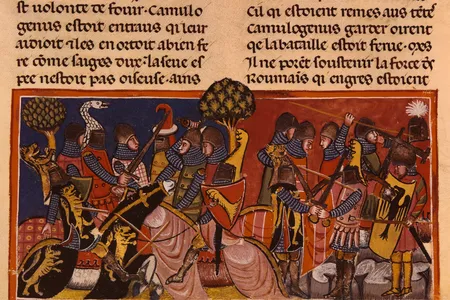 st volonte de fouir. camulo
genus estoit entraus qui leur
aidoit iles en ortoit abien fe
re cōme sages dux. la seue es
pee nestoit pas oiseuse. ains
Cil qui estoient remes aus tētes
camulogenus garter oirent
que la bataille estoit ferue. mes
Il ne poēt soustenir la force d̄s
Roumais qi engres estoient